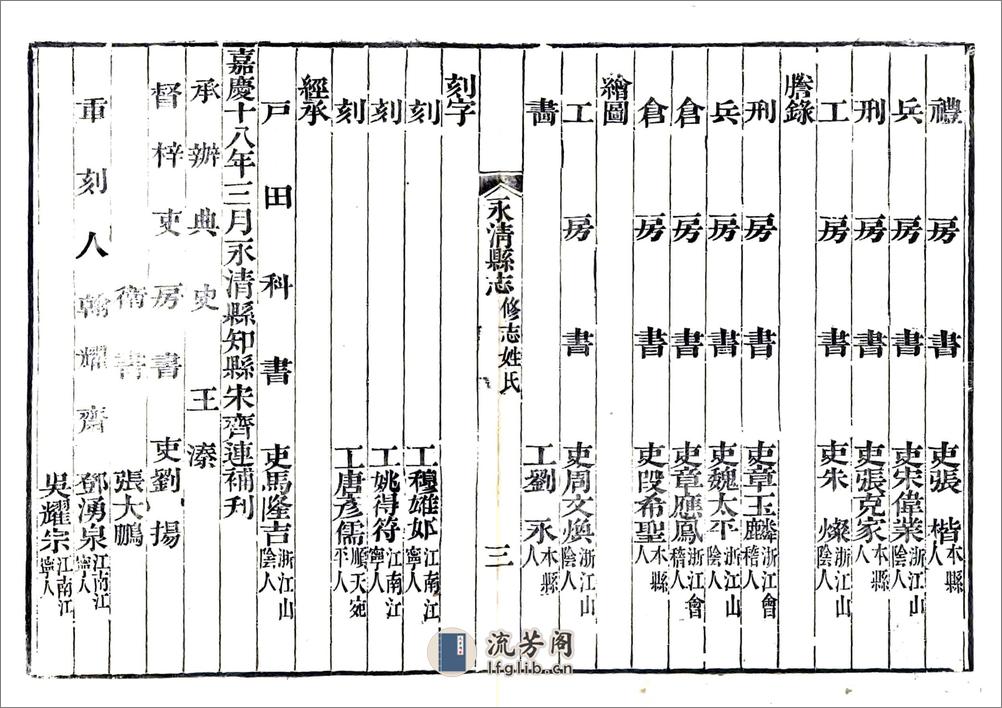 禮房書吏張楷本縣人
兵房書吏宋偉業浙江山陰人
刑房書吏張克家本縣人
工房書吏朱燦浙江山陰人
謄錄
刑房書吏章玉麟浙江會稽人
兵房書吏魏太平浙江山陰人
倉房書吏章應鳳浙江會稽人
倉房書吏段希聖本縣人
繪圖
工房書吏周文煥浙江山陰人
畫工劉永本縣人
永清縣志 修志姓氏 三
刻字
刻工穆維邺江南江寧人
刻工姚得符江南江寧人
刻工唐彥儒順天宛平人
經承
戶田科書吏馬隆吉浙江山陰人
嘉慶十八年三月永清縣知縣宋齊連補刊
承辦典史王溱
督梓吏房書吏劉揚
衛書張大鵬
重刻人翰耀齋鄧湧泉江南江寧人
吳耀宗江南江寧人
流芳阁
lfglib.cn